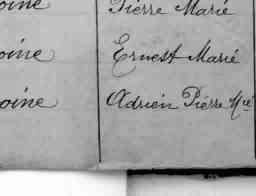 oine Pierre Marié
oine Ernest Marié
oine Adrien Pierre Mié